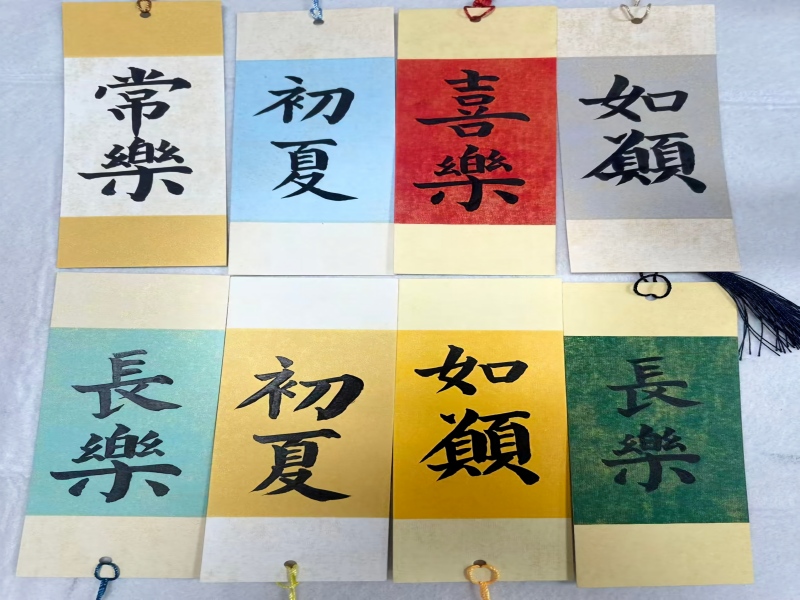 常樂
初夏
喜樂
如願
長樂
初夏
如願
長樂